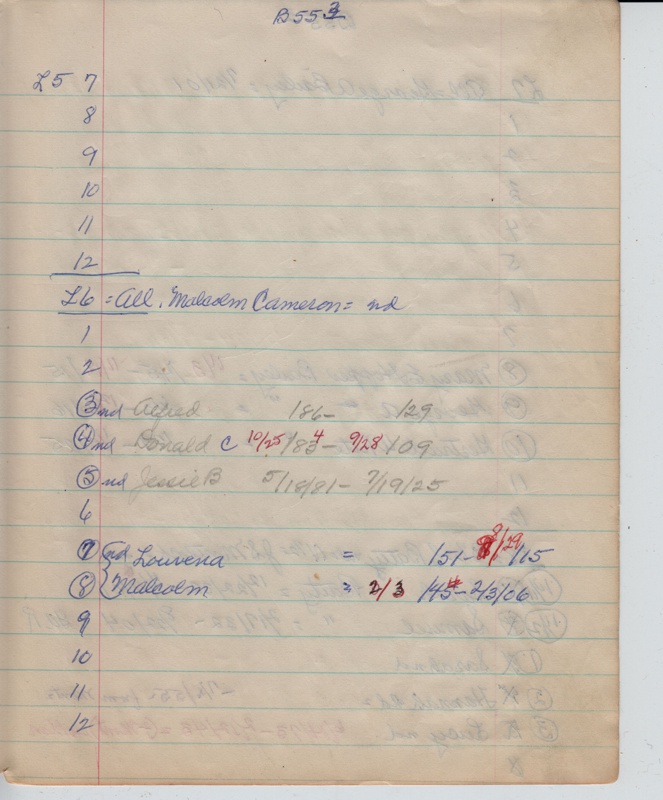 B55 3
L5 7
8
9
10
11
12
L6 = All. Malcolm Cameron = nd
1
2
3 nd Alfred /86- /29
4 nd Donald C 10/25/834- 9/28/09
5 nd Jessie B 5/18/81- 7/19/25
6
7 nd Louvena = /51- 8/29/15
8 Malcolm = 2/3 /454- 2/3/06
9
10
11
12